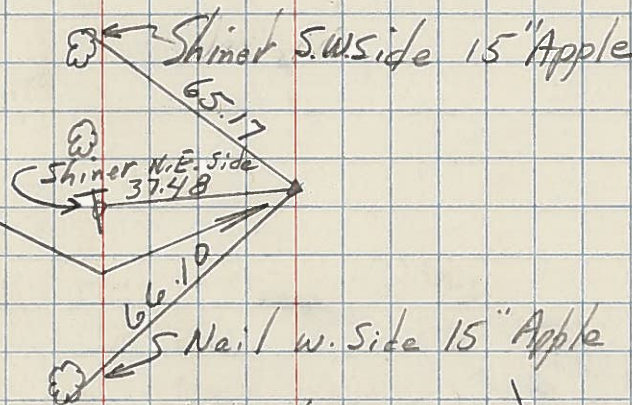 Shiner S.W. Side 15" Apple
65.17
Shiner N.E. Side
37.48
66.10
Nail w. Side 15" Apple